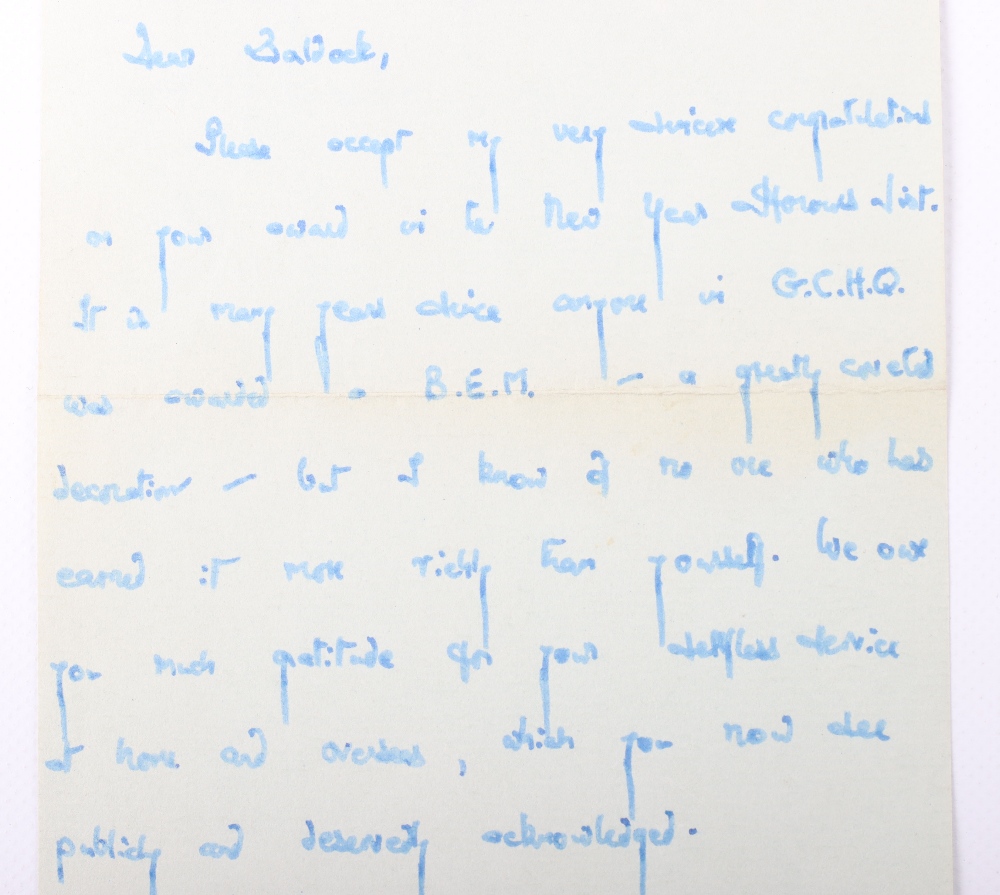 Dear Baldock,
Please accept my very sincere congratulations
on your award in the New Year Honours list.
It is many years since anyone in G.C.H.Q.
was awarded a B.E.M. – a greatly coveted
decoration – but I know of no one who has
earned it more richly than yourself. We owe
you much gratitude for your selfless service
at home and overseas, which you now see
publicly and deservedly acknowledged.